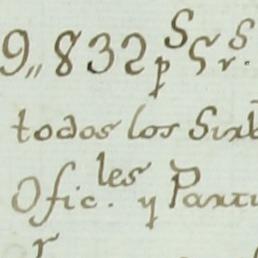 9,,832 p^S S r^S.
todos los Sirb
Ofic.^les y Parti
r